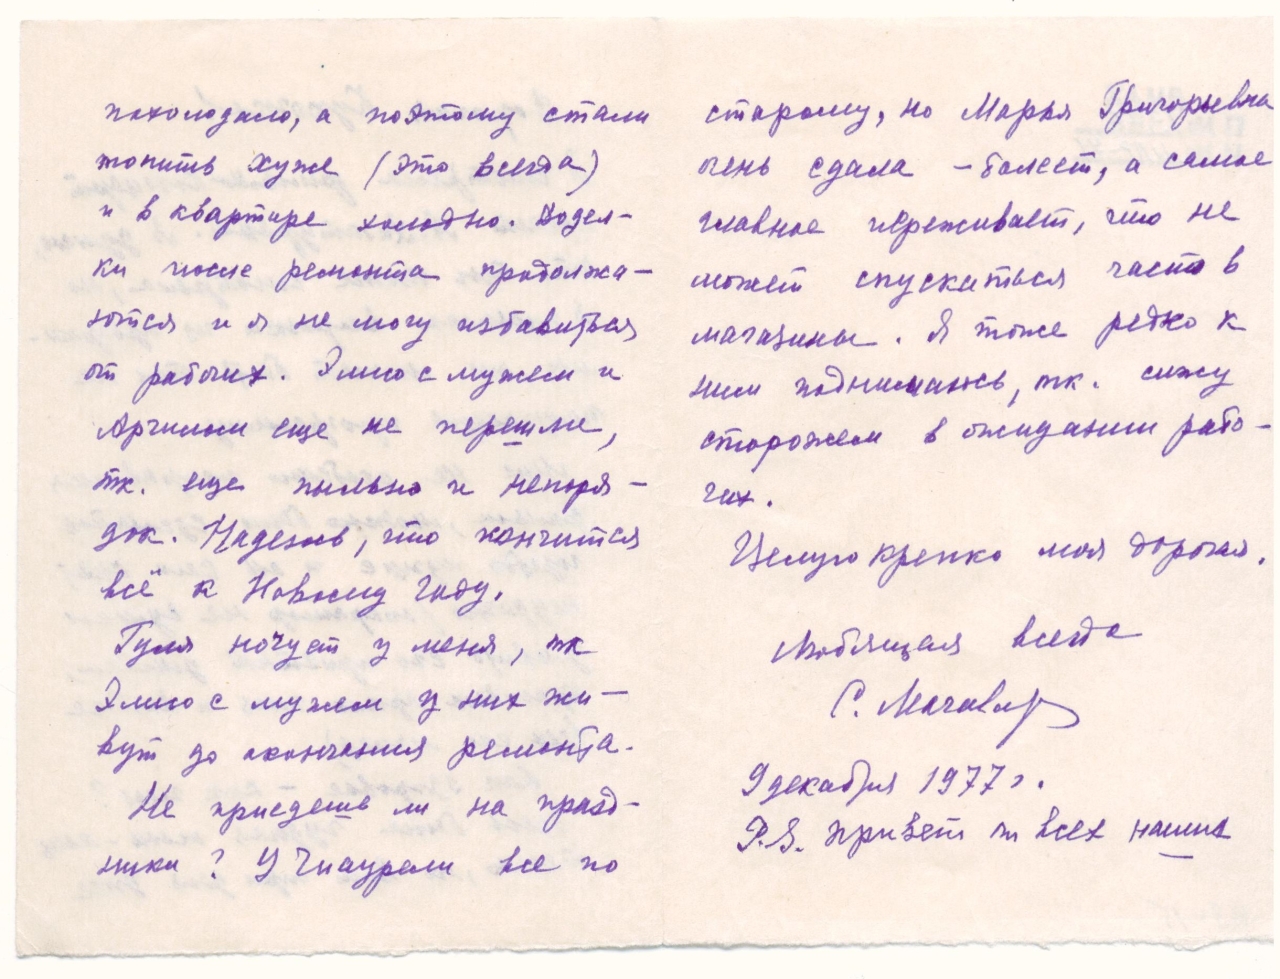 похолодало, а поэтому стали
топить хуже (это всегда)
и в квартире холодно. Подел-
ки после ремонта продолжа-
ются и я не могу избавиться
от рабочих. Элисо с мужем и
Арчилом еще не перешли,
тк. еще пыльно и непоря-
док. Надеюсь, что кончится
всё к Новому году.
Гуля ночует у меня, тк
Элисо с мужем у них жи-
вут до окончания ремонта.
Не приедешь ли на празд-
ники? У Чиаурели все по
старому, но Марья Григорьевна
очень сдала - болеет, а самое
главное переживает, что не
может спускаться часто в
магазины. Я тоже редко к
ним поднимаюсь, тк. сижу
сторожем в ожидании рабо-
чих.
Целую крепко моя дорогая.
Любящая всегда
С.
9 декабря 1977 г.
P.S. привет от всех наших